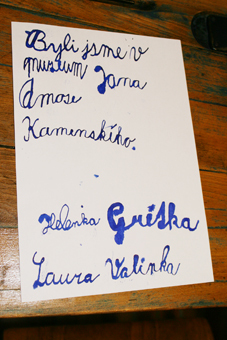 Byli jsme v
muzeum Jana
Amose
Kamenského.
Helenka Gréška
Laura Valinka